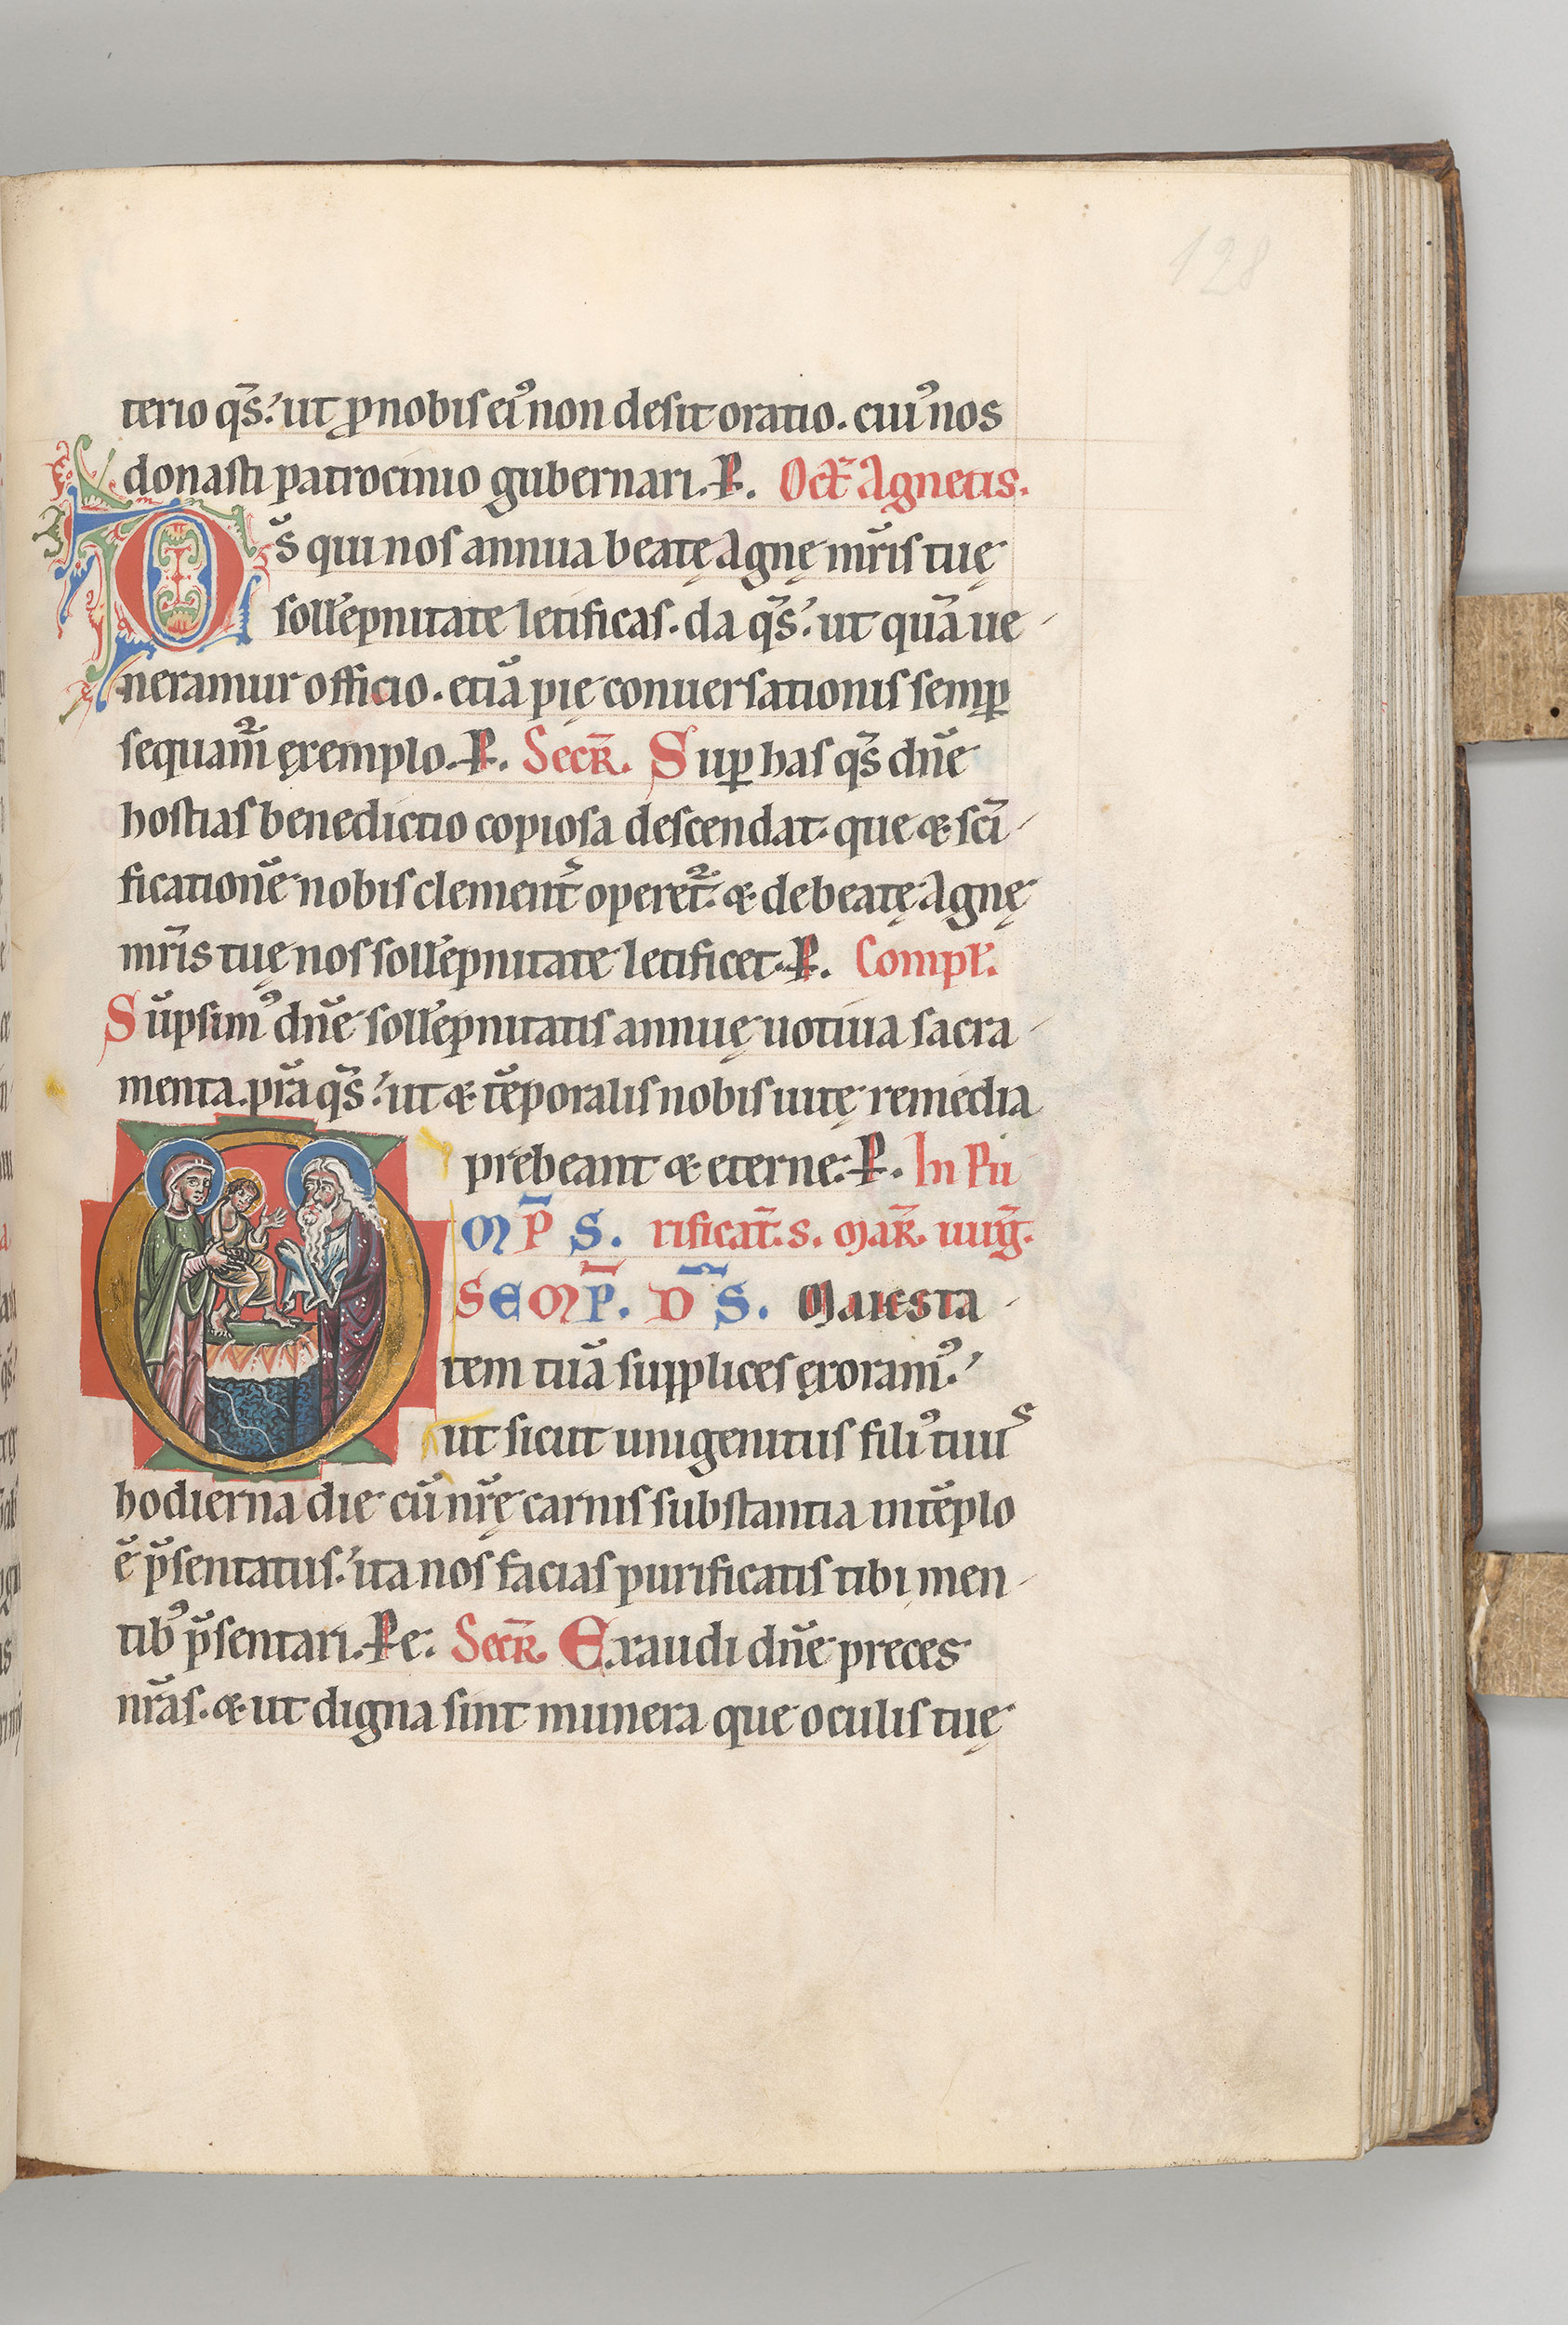 128
terio q̄s. ut ꝓ nobis ei᾽ non desit oratio. cui᾽ nos
donasti patrocinio gubernari. P. Oct̄ Agnetis.
D s̄ qui nos annua beatę Agnę mr̄is tuę
soll̄epnitate letificas. da q̄s. ut quā ue
neramur officio. etiā pię conuersationis semꝑ
sequam̄ ęxemplo. P. Secr̄. Suꝑ has q̄s dn̄e
hostias benedictio copiosa descendat. que & sc̄i
ficationē nobis clement̄ operet̄. & de beatę Agnę
mr̄is tuę nos soll̄epnitate letificet. P. Compl̄.
Sūpsim᾽ dn̄e soll̄epnitatis annuę uotiua sacra
menta. pr̄a q̄s. ut & tēporalis nobis uitę remedia
prebeant & eterne. P. In Pu
OMP̄S. rificat̄. s. Mar̄. uirḡ.
SEMP̄. D̄S. Maiesta
tem tuā supplices ęxoram᾽.
ut sicut unigenitus fili᾽ tuus
hodierna die cū nr̄ę carnis substantia in tēplo
ē p̄sentatus. ita nos facias purificatis tibi men
tib᾽ p̄sentari. Pe. Secr̄. Exaudi dn̄e preces
nr̄as. & ut digna sint munera que oculis tuę